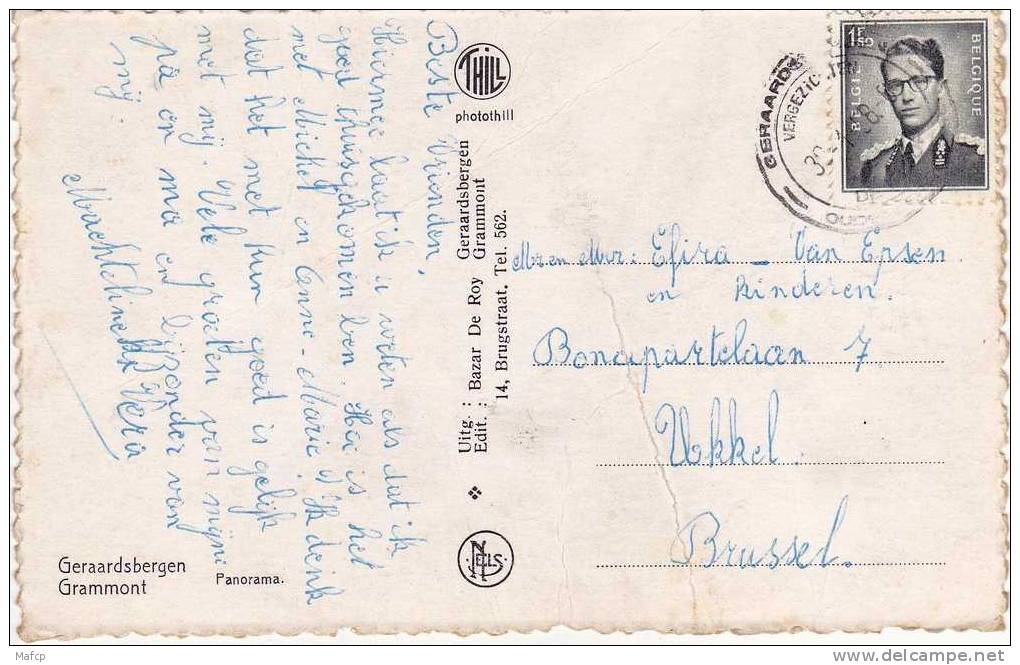 Beste Vrienden,
Hiermee laat ik u weten als dat ik
goed thuisgekomen ben. Hoe is het
met Michel en Anne-Marie? Ik denk
dat het met hun goed is gelijk
met mij. Vele groeten van mijne
pa en ma en bijzonder van
mij.
Vera
THILL
photothill
Uitg. : Bazar De Roy Geraardsbergen
Edit. : Grammont
14, Brugstraat, Tel. 562.
NELS
Geraardsbergen
Grammont
Panorama.
BELGIE
BELGIQUE
1F50
GERAARDS
VERGEZICHTEN
OUD
Mr en Mvr : Efira – Van Epsen
en kinderen.
Bonapartelaan 7
Ukkel.
Brussel.
Mafcp
www.delcampe.net